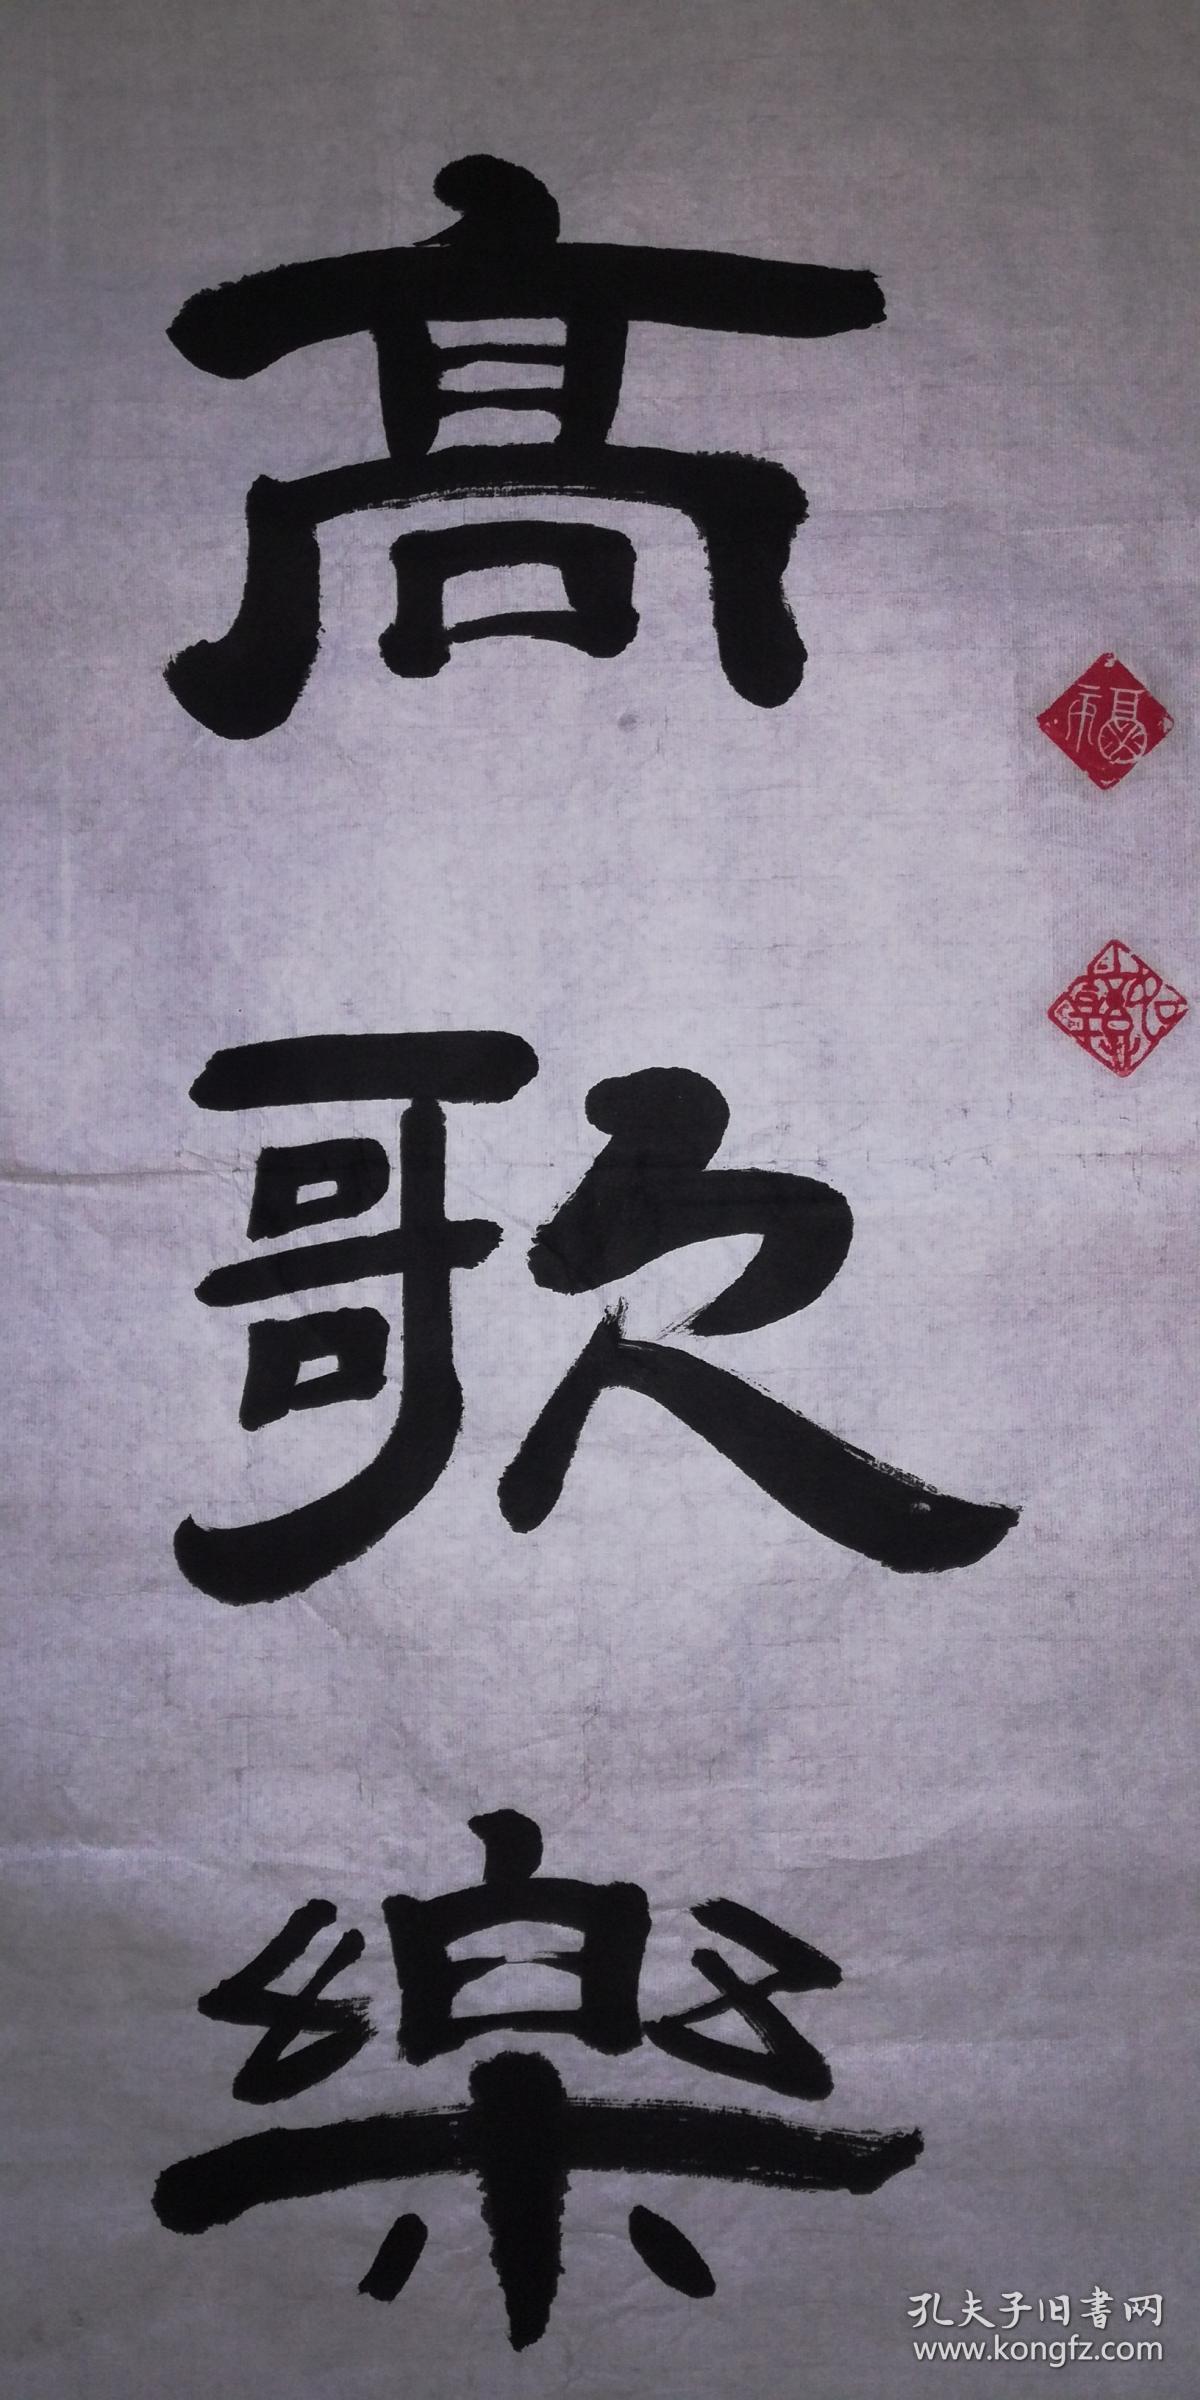 髙
歌
樂
福
孔夫子旧書网
www.kongfz.com